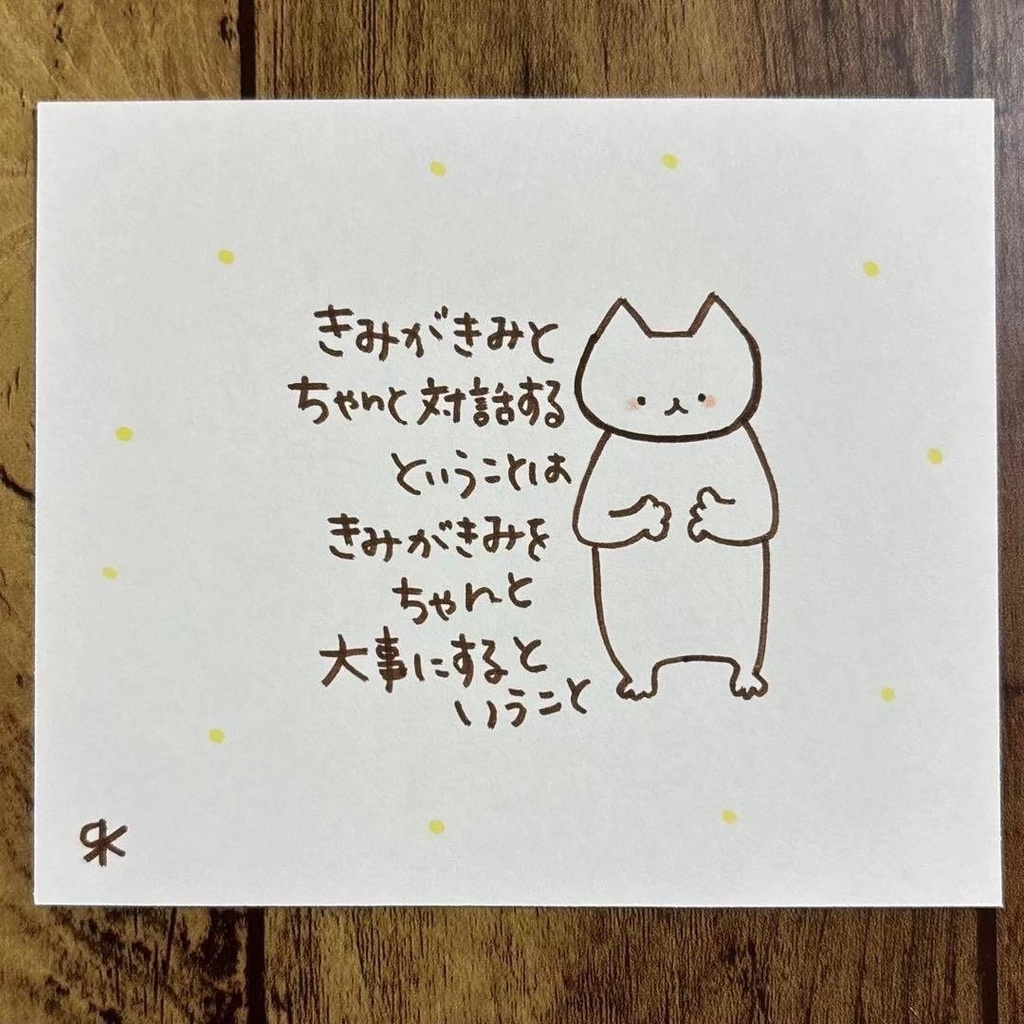 きみがきみと
ちゃんと対話する
ということは
きみがきみを
ちゃんと
大事にすると
いうこと